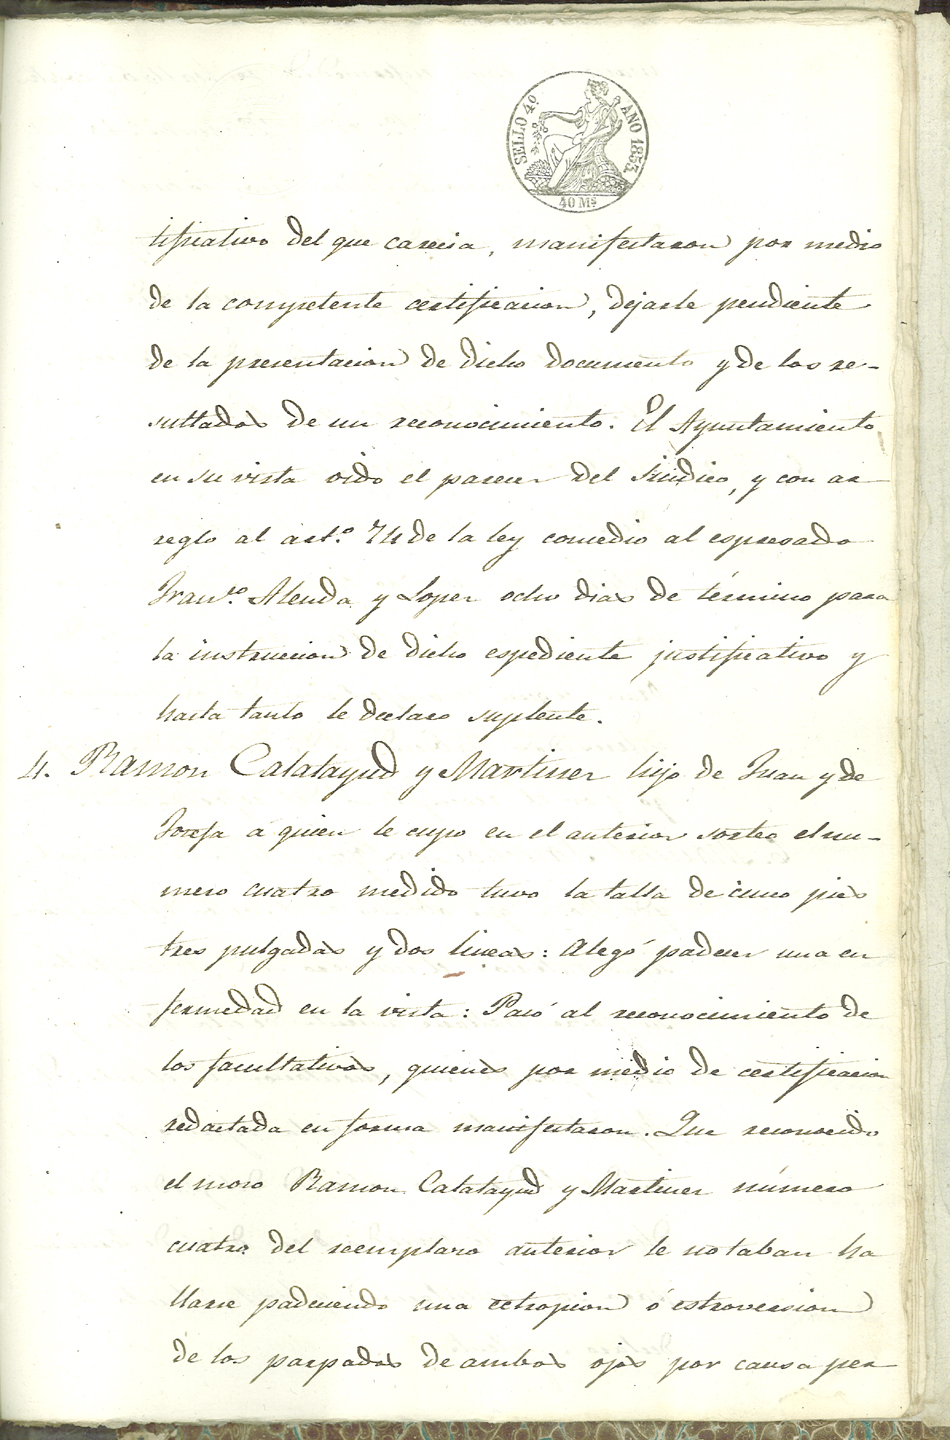 SELLO 4º AÑO 1853.
40 Ms
tificativo del que carecia, manifestaron por medio
de la competente certificacion, dejarle pendiente
de la presentacion de dicho documento y de los re-
sultados de un reconocimiento. El Ayuntamiento
en su vista oido el parecer del Síndico, y con ar
reglo al art.º 74 de la ley concedio al espresado
Fran.co Alenda y Lopez ocho dias de término para
la instruccion de dicho espediente justificativo y
hasta tanto le declaro suplente.
4. Ramon Calatayud y Martinez hijo de Juan y de
Josefa á quien le cupo en el anterior sorteo el nu-
mero cuatro medido tuvo la talla de cinco pies
tres pulgadas y dos lineas: Alegó padecer una en
fermedad en la vista: Pasó al reconocimiento de
los facultativos, quienes por medio de certificacion
redactada en forma manifestaron. Que reconocido
el mozo Ramon Calatayud y Martinez número
cuatro del reemplazo anterior le notaban ha
llarse padeciendo una ectropion ó estroversion
de los parpados de ambos ojos por causa per